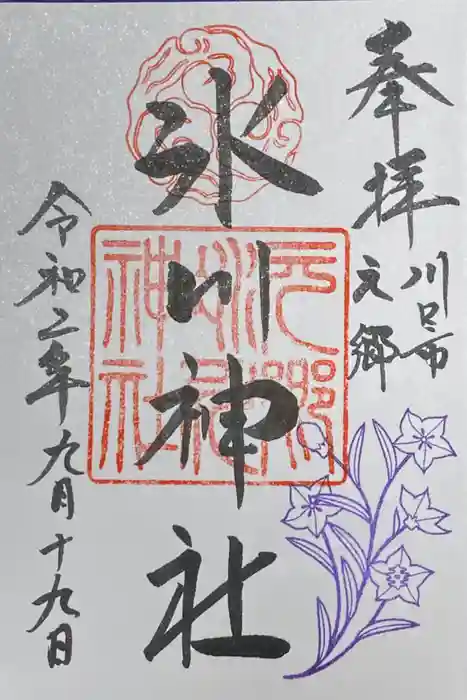 奉拝
川口市
元郷
氷川神社
令和二年九月十九日
元郷
氷川
神社